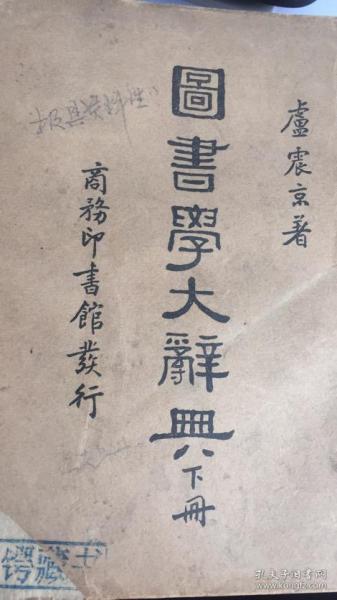 盧震京著
圖書學大辭典下冊
商務印書館發行
孔夫子旧书网